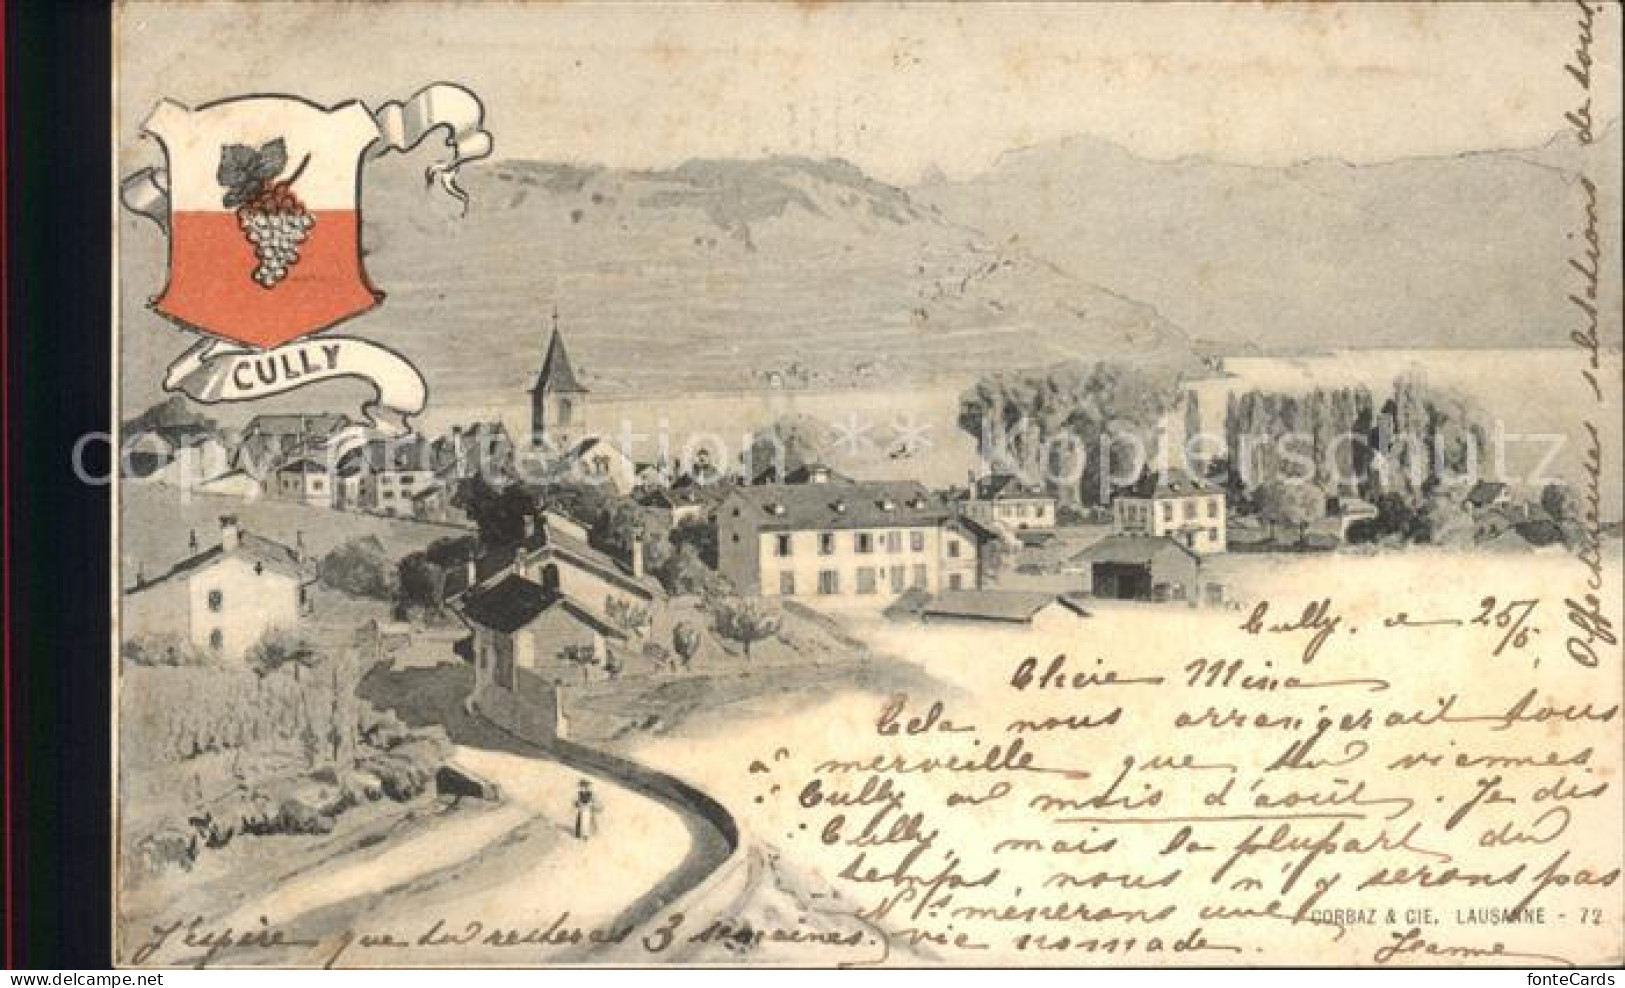 CULLY
Cully, le 25/5.
Chère Mina
Cela nous arrangerait tous
à merveille que tu viennes
à Cully au mois d'août. Je dis
Cully, mais la plupart du
temps, nous n'y serons pas
Ns mènerons une
vie nomade.
J'espère que tu resteras 3 semaines.
Jeanne
Affectueuses salutations de tous.
CORBAZ & CIE. LAUSANNE - 72
copyright protection ** Kopierschutz
fonteCards